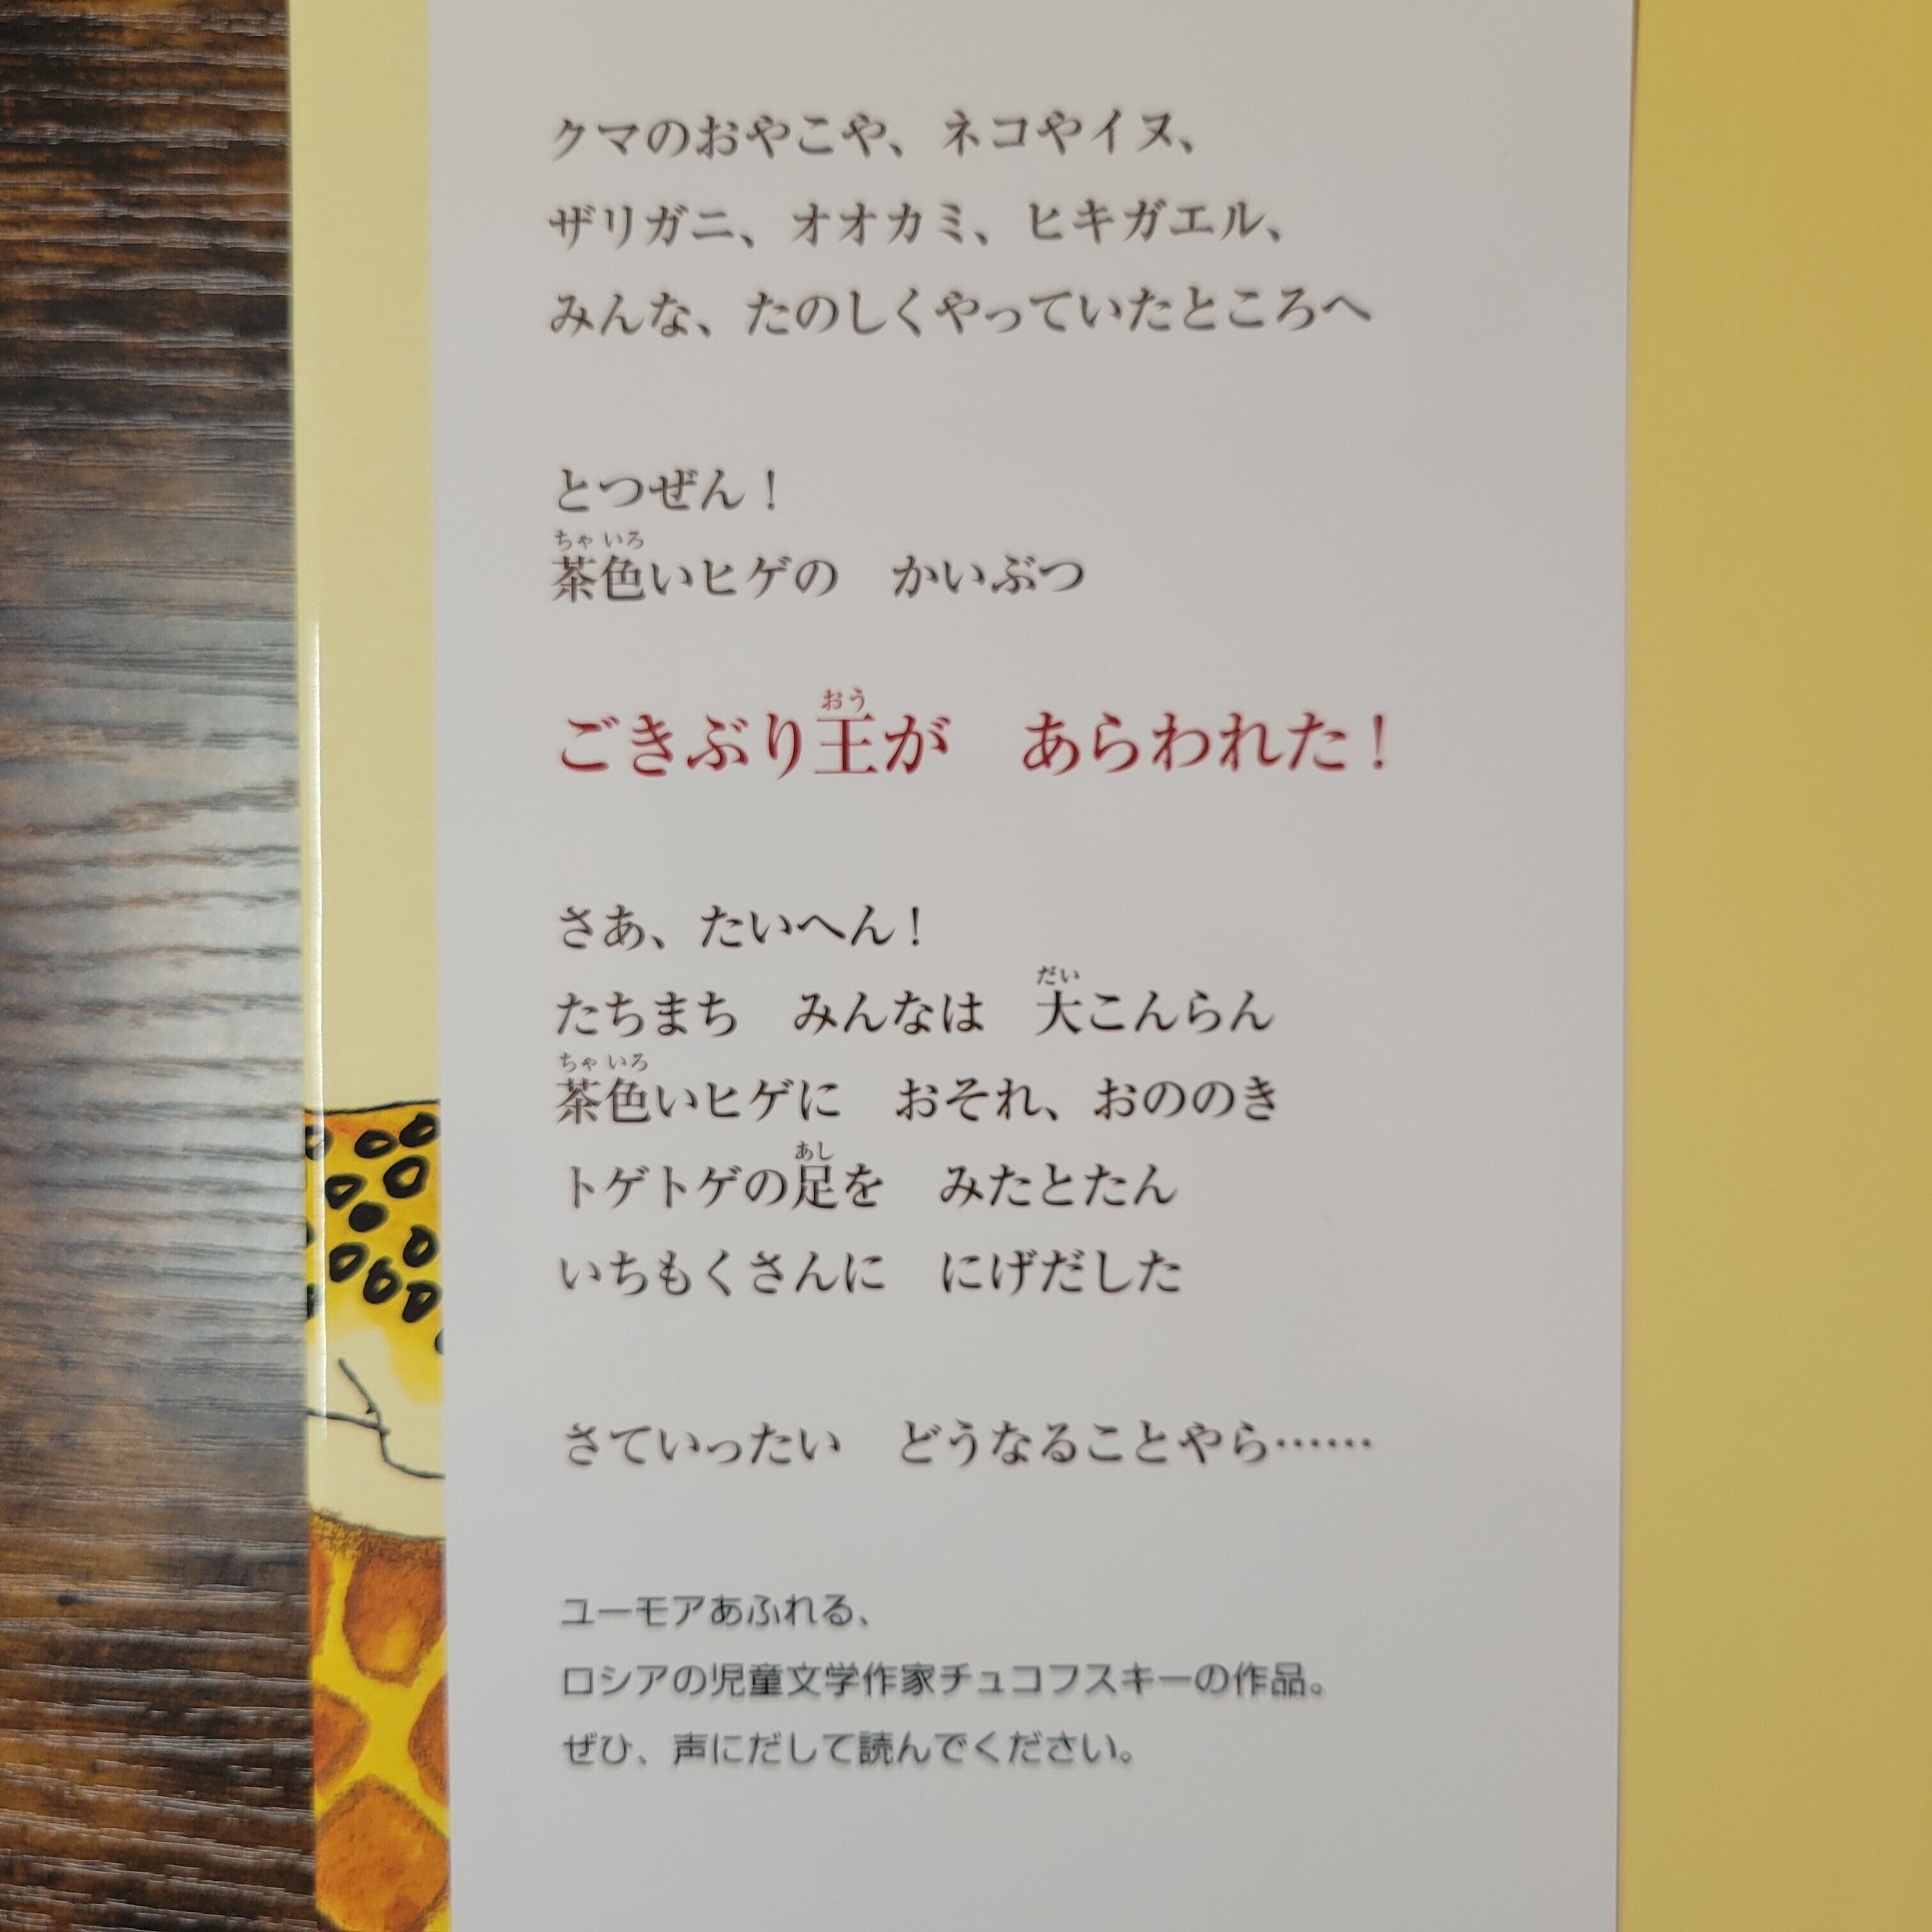 クマのおやこや、ネコやイヌ、
ザリガニ、オオカミ、ヒキガエル、
みんな、たのしくやっていたところへ
とつぜん！
ちゃいろ
茶色いヒゲの　かいぶつ
おう
ごきぶり王が　あらわれた！
さあ、たいへん！
だい
たちまち　みんなは　大こんらん
ちゃいろ
茶色いヒゲに　おそれ、おののき
あし
トゲトゲの足を　みたとたん
いちもくさんに　にげだした
さていったい　どうなることやら……
ユーモアあふれる、
ロシアの児童文学作家チュコフスキーの作品。
ぜひ、声にだして読んでください。